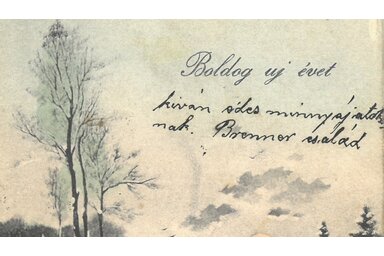 Boldog uj évet
kiván édes minnyájatok
nak. Brenner család